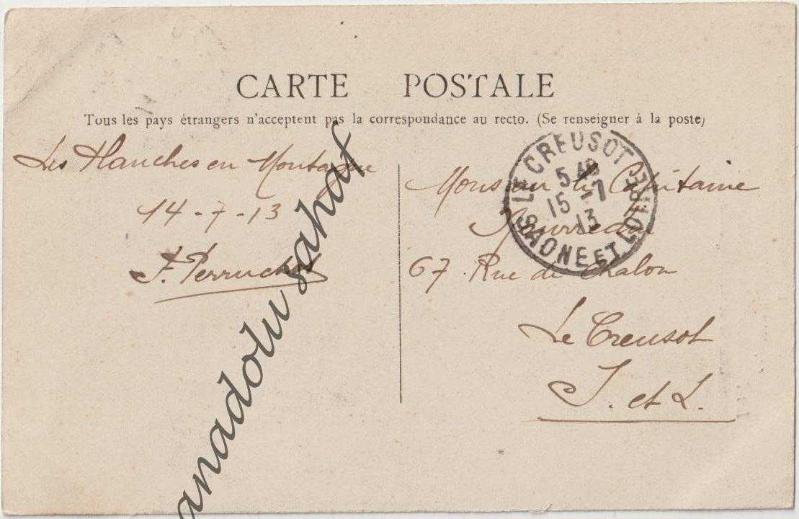 CARTE POSTALE
Tous les pays étrangers n'acceptent pas la correspondance au recto. (Se renseigner à la poste)
Les Planches en Montagne
14-7-13
F. Perruchot
LE CREUSOT
5 40
15 -7
13
SAONE ET LOIRE
Monsieur le Capitaine
67 Rue de Chalon
Le Creusot
S. et L.
anadolu sahaf